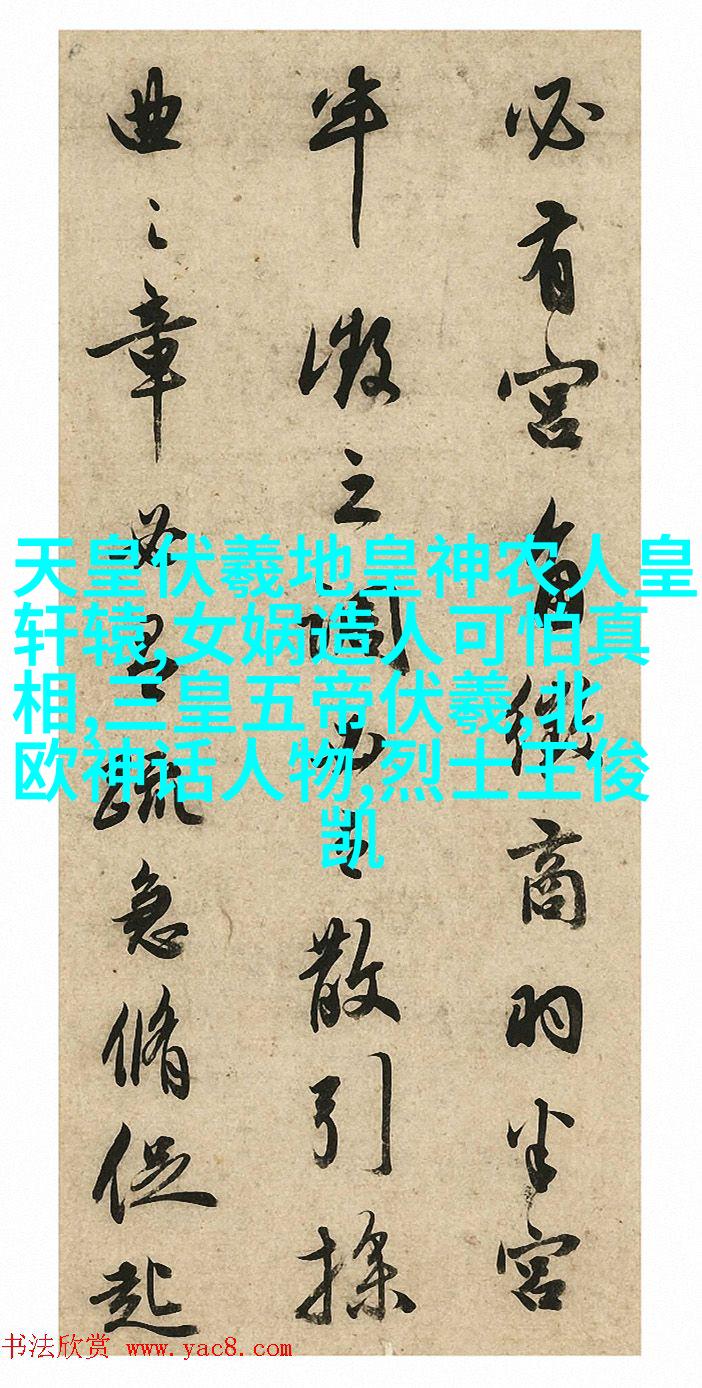 必有宮角徵商羽半宮
半徵之調散引操
曲之章必疏急脩促起
天皇伏羲地皇神农人皇
轩辕,女娲造人可怕真
相,三皇五帝伏羲,北
欧神话人物,烈士王俊
凯
书法欣赏 www.yac8.com